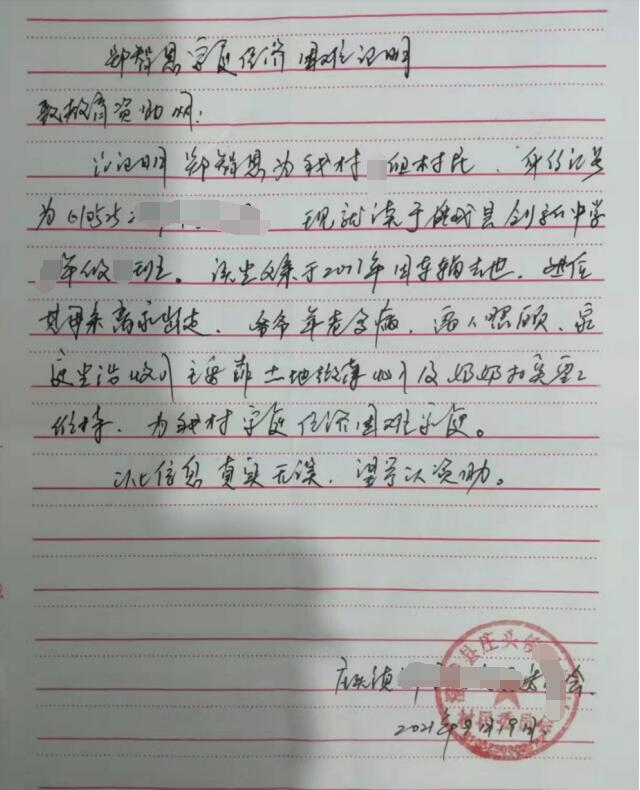 郑智恩家庭经济困难证明
致教育资助网:
兹证明郑智恩为我村 组村民、身份证号
为610525 现就读于澄城县创新中学
年级 班。该生父亲于2017年因车祸去世,
其母亲离家出走,爷爷年老多病,需人照顾,家
庭生活收入主要靠土地微薄收入及奶奶打零工
维持,为我村家庭经济困难家庭。
以上信息真实无误,望予以资助。
庄头镇 会
2021年9月19日
县庄头镇
村民委员会